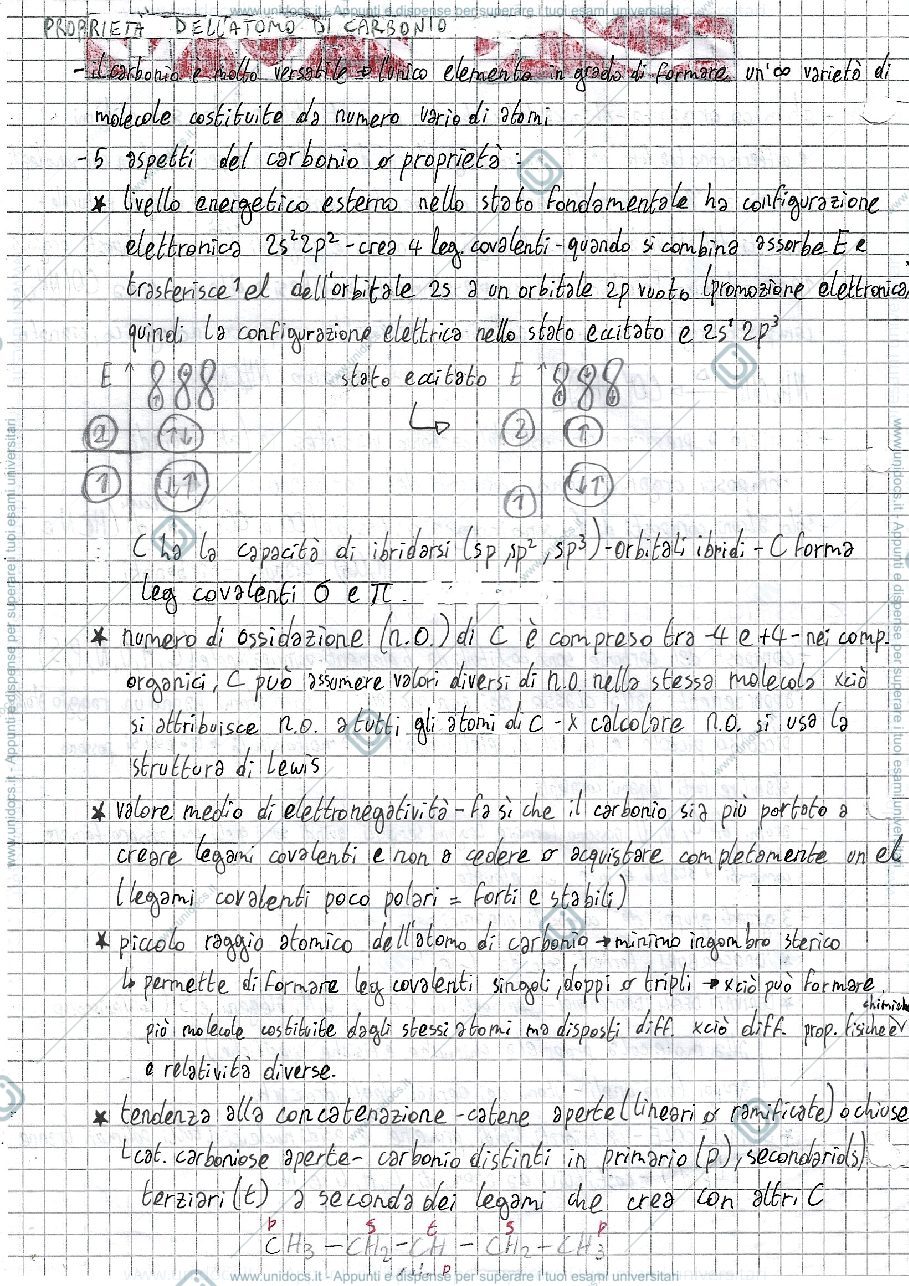 www.unidocs.it - Appunti e dispense per superare i tuoi esami universitari
PROPRIETÀ DELL'ATOMO DI CARBONIO
- il carbonio è molto versatile → l'unico elemento in grado di formare un'∞ varietà di
molecole costituite da numero vario di atomi
- 5 aspetti del carbonio o proprietà :
* livello energetico esterno nello stato fondamentale ha configurazione
elettronica 2s² 2p² - crea 4 leg. covalenti - quando si combina assorbe E e
trasferisce 1 el dell'orbitale 2s a un orbitale 2p vuoto (promozione elettronica,
quindi la configurazione elettrica nello stato eccitato e 2s¹ 2p³
E ↑ stato eccitato E ↑
2 ↑↓ 2 ↑
1 ↓↑ 1 ↓↑
C ha la capacità di ibridarsi (sp, sp², sp³) - orbitali ibridi - C forma
leg covalenti σ e π.
* numero di ossidazione (n.o.) di C è compreso tra -4 e +4 - nei comp.
organici, C può assumere valori diversi di n.o nella stessa molecola xciò
si attribuisce n.o. a tutti gli atomi di C - x calcolare n.o. si usa la
struttura di Lewis
* valore medio di elettronegatività - fa sì che il carbonio sia più portato a
creare legami covalenti e non a cedere o acquistare completamente un el
(legami covalenti poco polari = forti e stabili)
* piccolo raggio atomico dell'atomo di carbonio → minimo ingombro sterico
↳ permette di formare leg covalenti singoli, doppi o tripli → xciò può formare
più molecole costituite dagli stessi atomi ma disposti diff. xciò diff. prop. fisiche e chimiche
e relatività diverse.
* tendenza alla concatenazione - catene aperte (lineari o ramificate) o chiuse
└ cat. carboniose aperte - carbonio distinti in primario (p), secondario (s)
terziari (t) a seconda dei legami che crea con altri C
p s t s p
CH3 - CH2 - CH - CH2 - CH3
p
www.unidocs.it - Appunti e dispense per superare i tuoi esami universitari
www.unidocs.it - Appunti e dispense per superare i tuoi esami universitari
www.unidocs.it - Appunti e dispense per superare i tuoi esami universitari